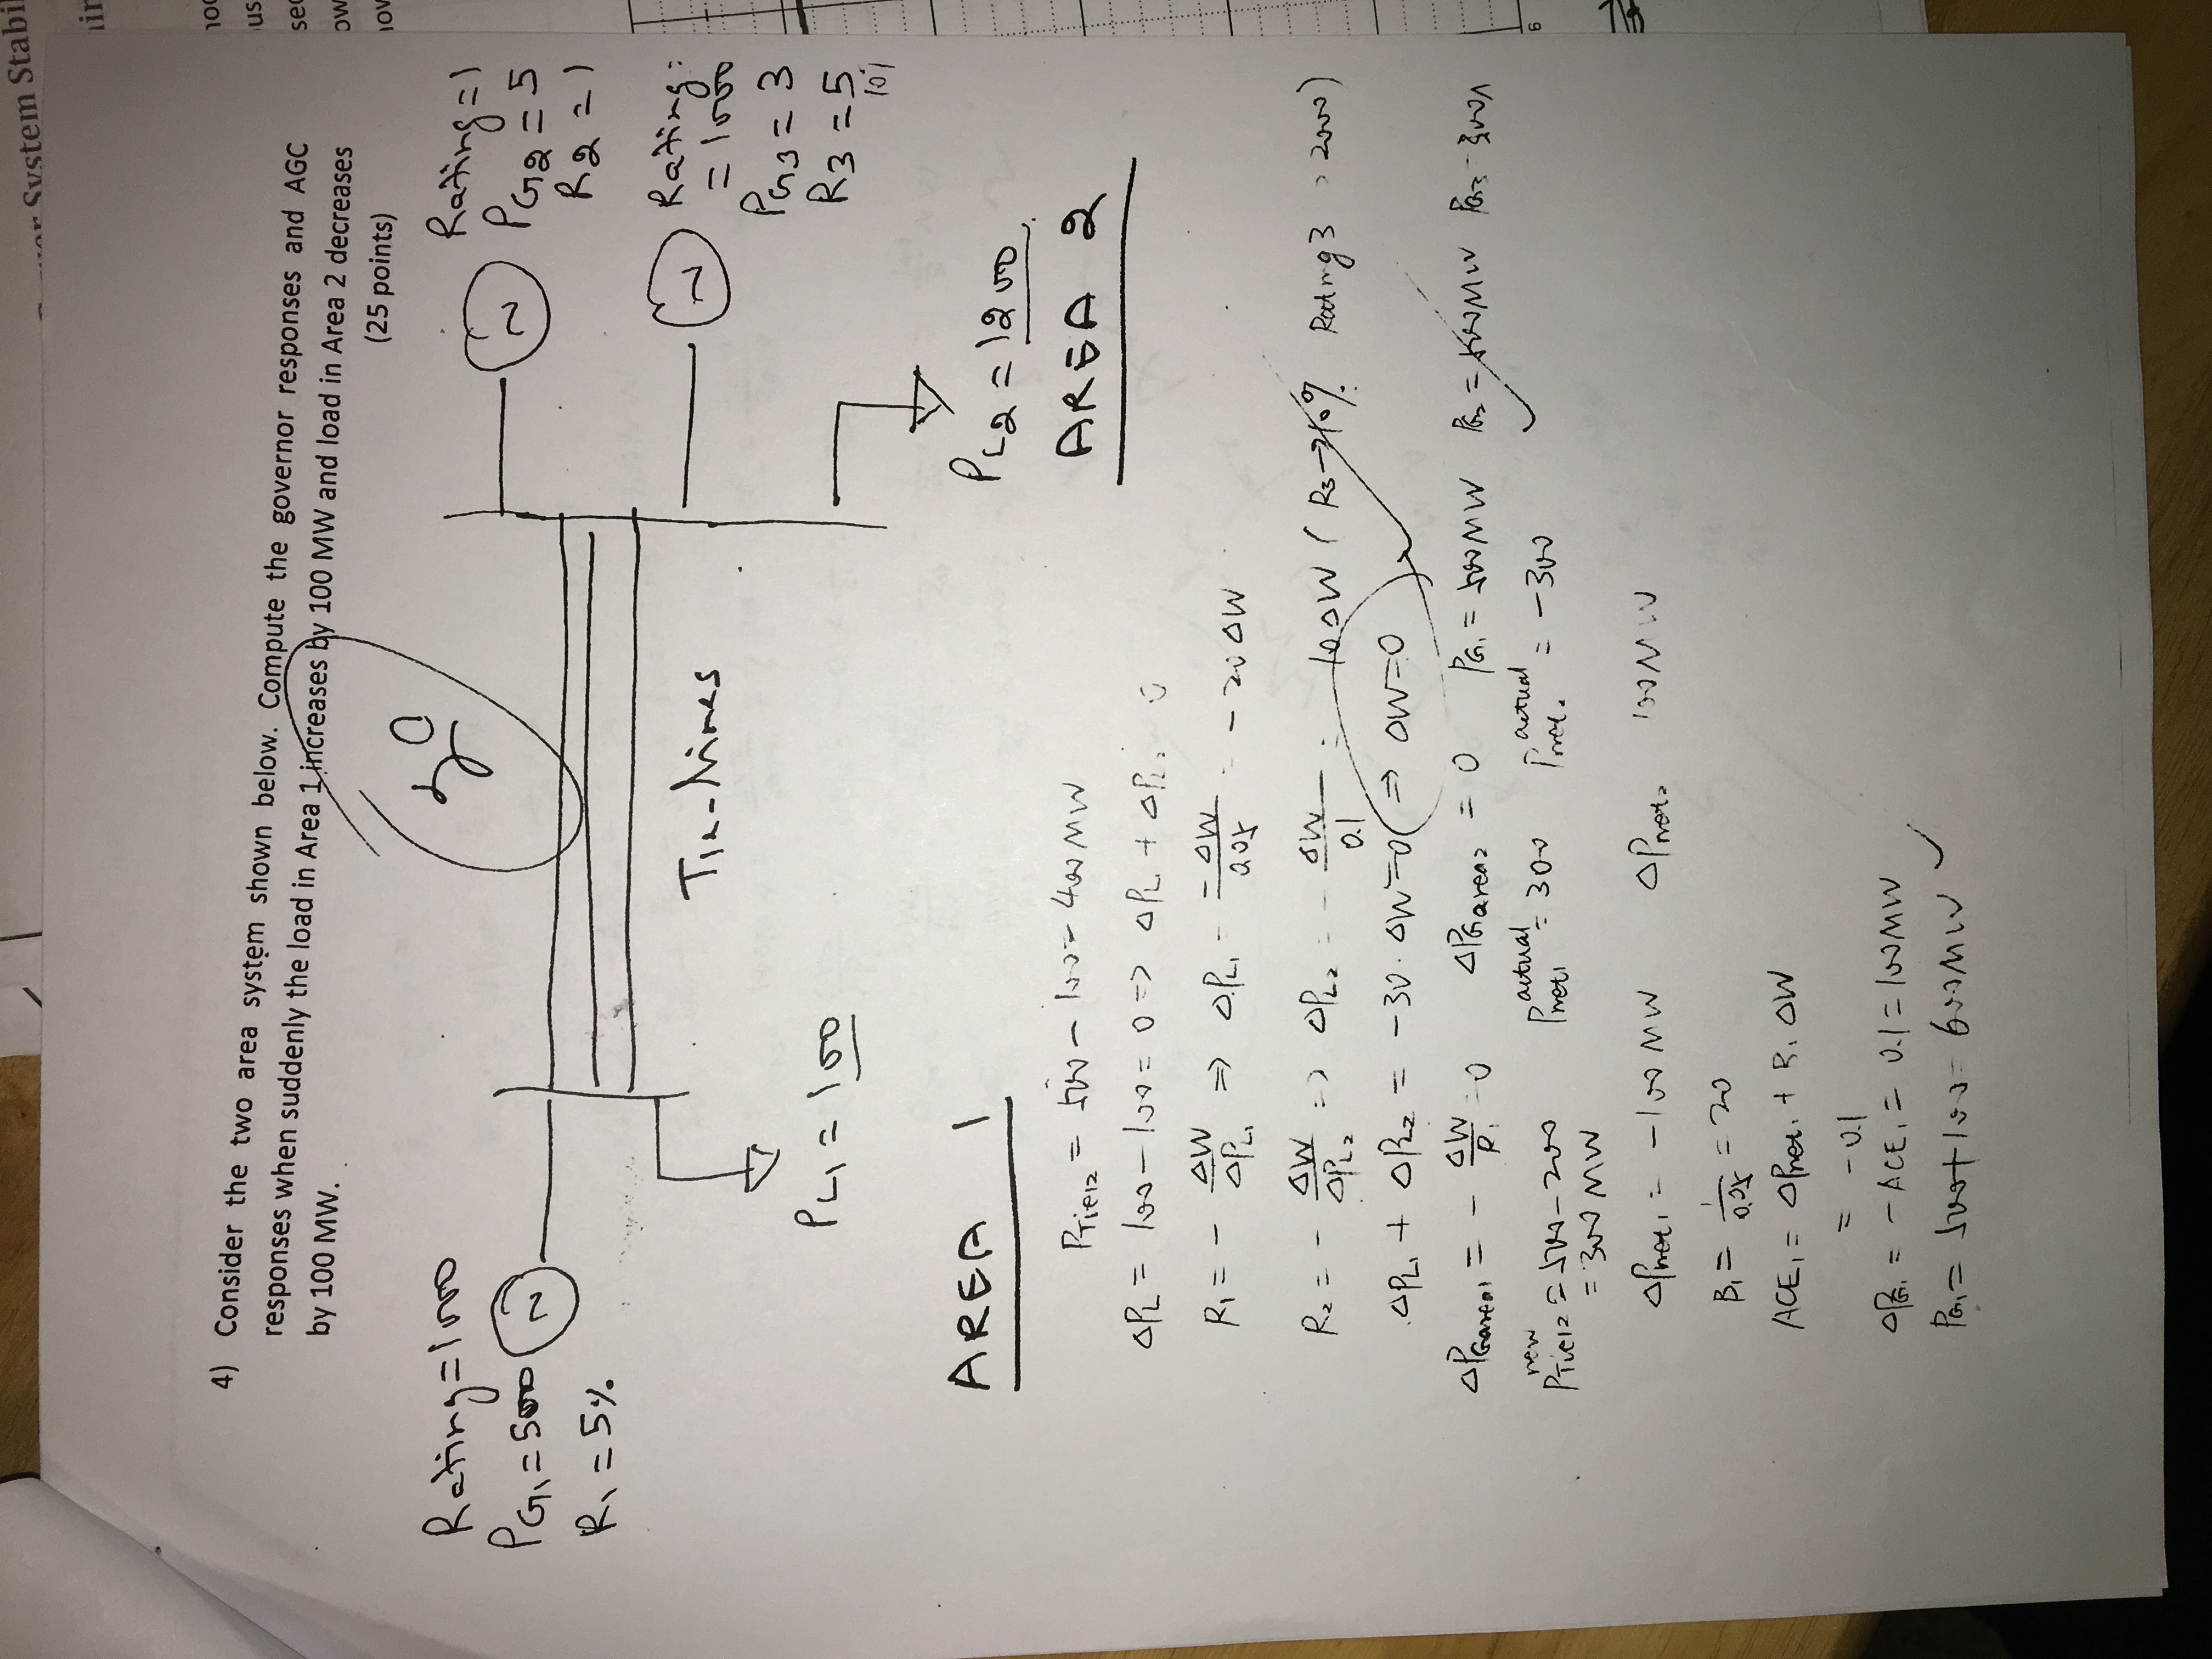 System Stabi
4) Consider the two area system shown below. Compute the governor responses and AGC
responses when suddenly the load in Area 1 increases by 100 MW and load in Area 2 decreases
by 100 MW.
(25 points)
Rating=1000
PG1=500
R1=5%
Rating=1
PG2=5
R2=1
Rating=
=1000
PG3=3
R3=5
10%
Tie-Lines
PL1=100
PL2=1200
AREA 1
AREA 2
PTie12 = 500-100= 400MW
ΔPL = 100-100= 0 => ΔPL + ΔPL2 0
R1= - ΔW/ΔPL1 => ΔPL1 - -ΔW/0.05 = -20ΔW
R2= - ΔW/ΔPL2 => ΔPL2 = - ΔW/0.1 = 10ΔW (R3→10% Rating3 2000)
ΔPL1 + ΔPL2 = -30·ΔW=0 => ΔW=0
ΔPGarea1 = - ΔW/R1 =0 ΔPGarea2 = 0 PG1=500MW PG2=500MW PG3
PTie12 new = 500-200 Pnet1 actual = 300 Pnet2 actual = -300
= 300MW
ΔPnet1 = -100MW ΔPnet2 100MW
B1= 1/0.05 = 20
ACE1= ΔPnet1 + B1 ΔW
= -0.1
ΔPG1 = -ACE1= 0.1=100MW
PG1= 500+100= 600MW